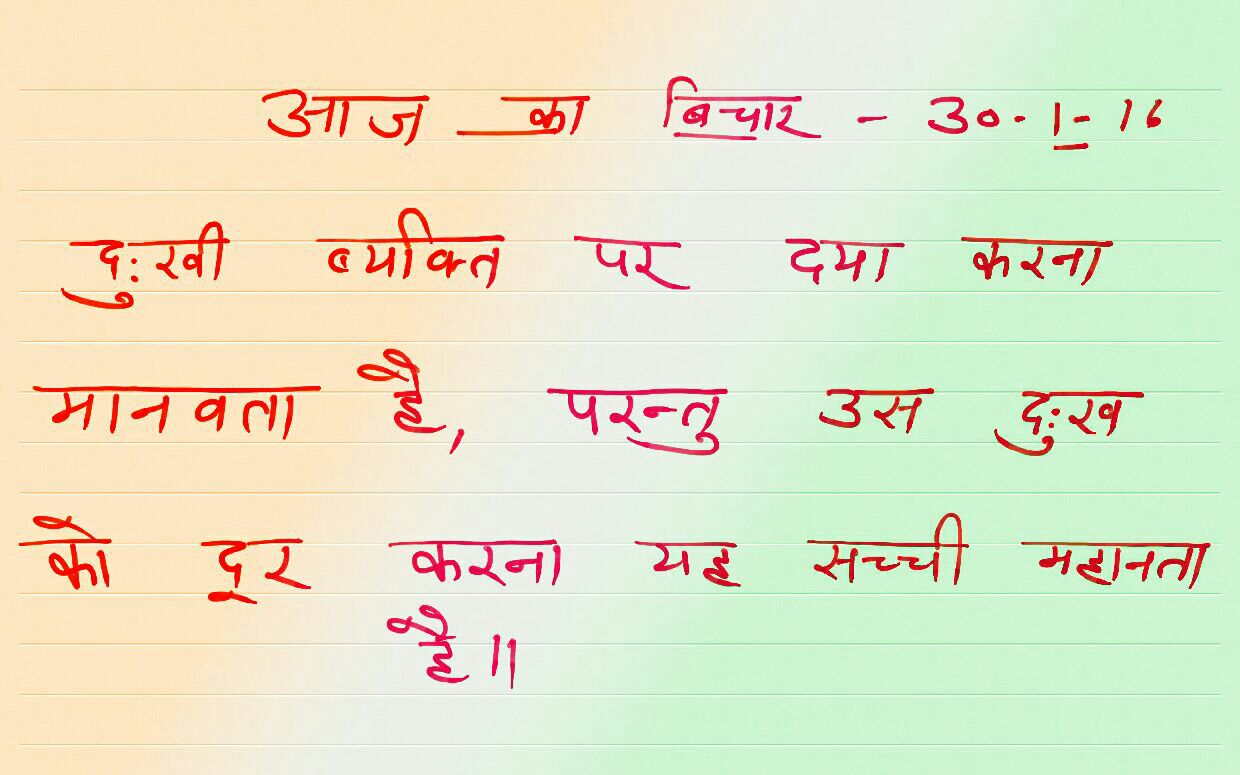 आज का बिचार - 30-1-16
दुःखी व्यक्ति पर दया करना
मानवता है, परन्तु उस दुःख
को दूर करना यह सच्ची महानता
है॥